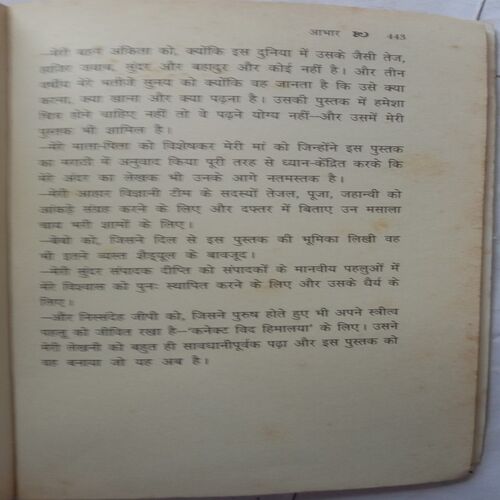 आभार 443
—मेरी बहन अंकिता को, क्योंकि इस दुनिया में उसके जैसी तेज,
हाजिर जवाब, सुंदर और बहादुर और कोई नहीं है। और तीन
वर्षीय मेरे भतीजे सुनय को क्योंकि वह जानता है कि उसे क्या
करना, क्या खाना और क्या पढ़ना है। उसकी पुस्तक में हमेशा
चित्र होने चाहिए नहीं तो वे पढ़ने योग्य नहीं—और उसमें मेरी
पुस्तक भी शामिल है।
—मेरे माता-पिता को विशेषकर मेरी मां को जिन्होंने इस पुस्तक
का मराठी में अनुवाद किया पूरी तरह से ध्यान-केंद्रित करके कि
मेरे अंदर का लेखक भी उनके आगे नतमस्तक है।
—मेरी आहार विज्ञानी टीम के सदस्यों तेजल, पूजा, जहान्वी को
आंकड़े संग्रह करने के लिए और दफ्तर में बिताए उन मसाला
चाय भरी शामों के लिए।
—बेबो को, जिसने दिल से इस पुस्तक की भूमिका लिखी वह
भी इतने व्यस्त शैड्यूल के बावजूद।
—मेरी सुंदर संपादक दीप्ति को संपादकों के मानवीय पहलुओं में
मेरे विश्वास को पुनः स्थापित करने के लिए और उसके धैर्य के
लिए।
—और निस्संदेह जीपी को, जिसने पुरुष होते हुए भी अपने स्त्रीत्व
पहलू को जीवित रखा है—‘कनेक्ट विद हिमालया’ के लिए। उसने
मेरी लेखनी को बहुत ही सावधानीपूर्वक पढ़ा और इस पुस्तक को
वह बनाया जो यह अब है।